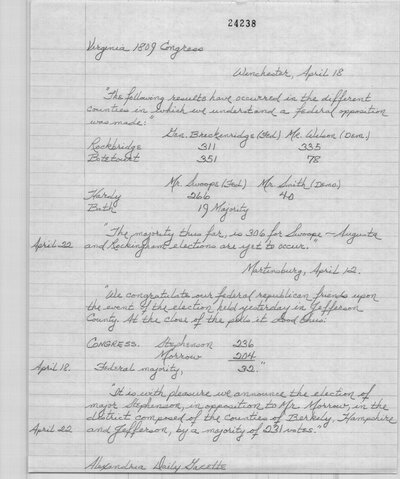 24238
Virginia 1809 Congress
Winchester, April 18
"The following results have occurred in the different
counties in which we understand a federal opposition
was made:"
Gen. Breckenridge (Fed) Mr. Wilson (Dem.)
Rockbridge 311 335
Botetourt 351 78
Mr. Swoope (Fed) Mr. Smith (Demo)
Hardy 266 40
Bath 19 Majority
"The majority thus far, is 306 for Swoope - Augusta
April 22 and Rockingham elections are yet to occur."
Martinsburg, April 12.
"We congratulate our federal republican friends upon
the event of the election held yesterday in Jefferson
County. At the close of the polls it stood thus:
CONGRESS. Stephenson 236
Morrow 204
April 18. Federal majority, 32."
"It is with pleasure we announce the election of
major Stephenson, in opposition to Mr. Morrow, in the
district composed of the counties of Berkely, Hampshire
April 22 and Jefferson, by a majority of 231 votes."
Alexandria Daily Gazette